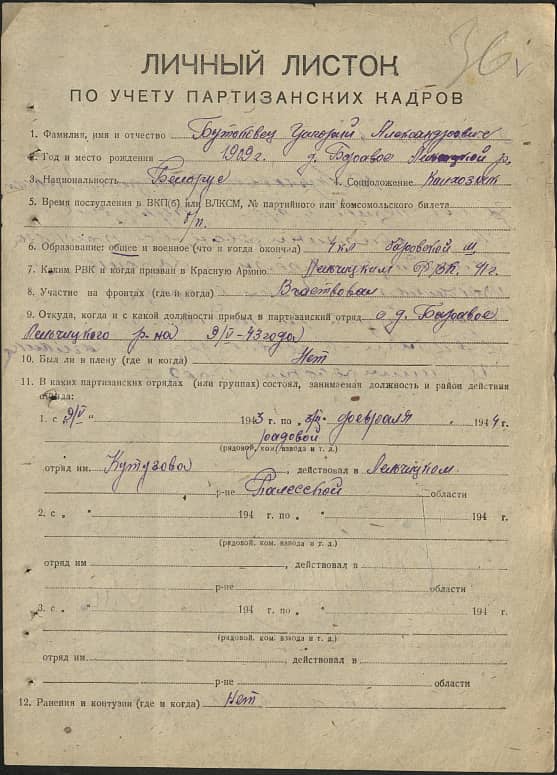 ЛИЧНЫЙ ЛИСТОК
ПО УЧЕТУ ПАРТИЗАНСКИХ КАДРОВ
1. Фамилия, имя и отчество Александрович
2. Год и место рождения 1909 г. д. Боровое р.
3. Национальность Белорус 4. Соцположение Колхозник
5. Время поступления в ВКП(б) или ВЛКСМ, № партийного или комсомольского билета
б/п.
6. Образование: общее и военное (что и когда окончил) 4 кл
7. Каким РВК и когда призван в Красную Армию Лельчицким РВК. 41 г.
8. Участие на фронтах (где и когда) Участвовал
9. Откуда, когда и с какой должности прибыл в партизанский отряд с д. Боравое
Лельчицкого р-на 9/V-43 года
10. Был ли в плену (где и когда) Нет
11. В каких партизанских отрядах (или группах) состоял, занимаемая должность и район действия
отряда:
1. с 9/V " 1943 г. по февраля 1944 г.
радовой
(рядовой, ком. взвода и т. д.)
отряд им Кутузова, действовал в Лельчицком
р-не Палесской области
2. с " 194 г. по " 194 г.
(рядовой, ком. взвода и т. д.)
отряд им , действовал в
р-не области
3. с " 194 г. по " 194 г.
(рядовой, ком. взвода и т. д.)
отряд им действовал в
р-не области
12. Ранения и контузии (где и когда) Нет